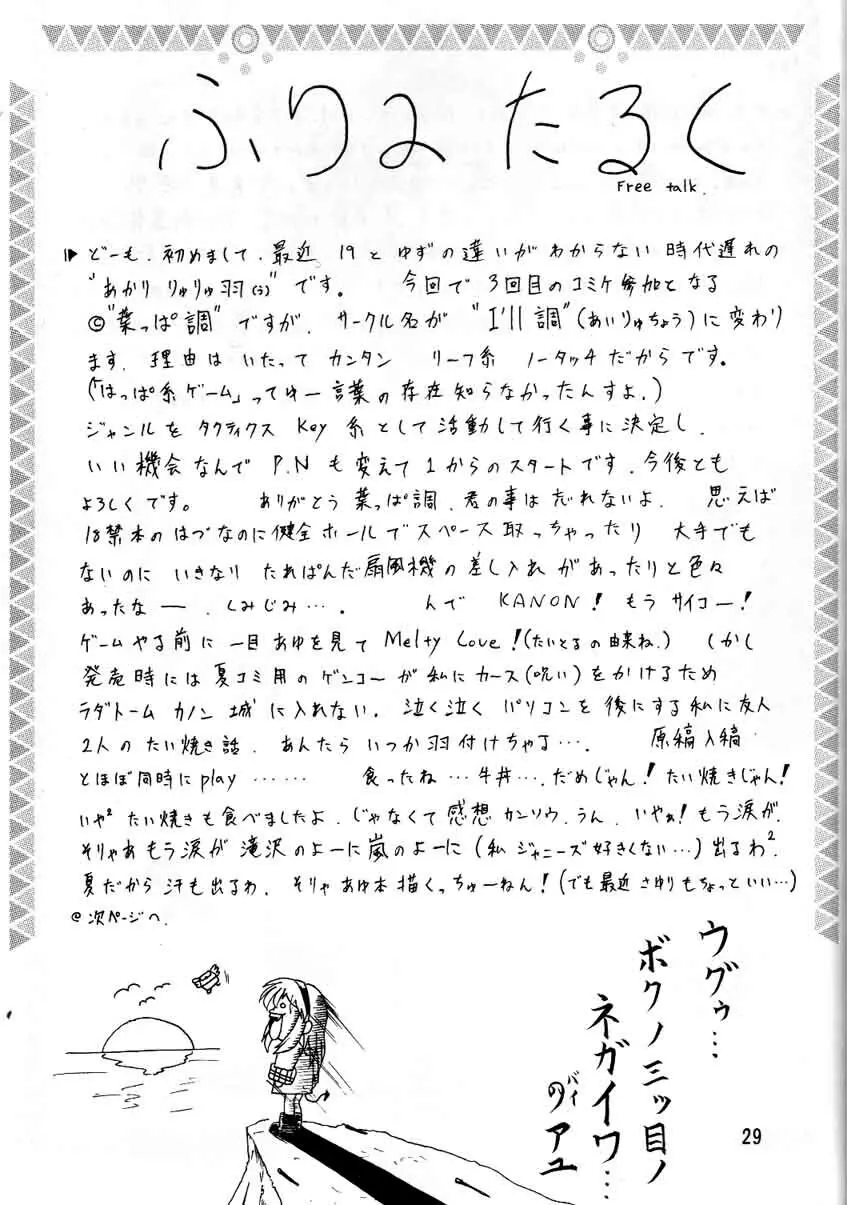 ふりーたるく
Free talk.
どーも、初めまして、最近 19とゆずの違いがわからない時代遅れの
"あかりりゅりゅ羽(う)"です。 今回で3回目のコミケ参加となる
©"葉っぱ調"ですが、サークル名が "I'll調"(あいりゅちょう)に変わり
ます、理由はいたってカンタン リーフ系 ノータッチだからです。
(「はっぱ系ゲーム」ってゆー言葉の存在知らなかったんすよ、)
ジャンルを タクティクス Key 系として活動して行く事に決定し、
いい機会なんで P.Nも変えて 1からのスタートです、今後とも
よろしくです。 ありがとう葉っぱ調、君の事は忘れないよ、 思えば
18禁本のはづなのに健全ホールでスペース取っちゃったり 大手でも
ないのに いきなり たれぱんだ扇風機の差し入れがあったりと色々
あったなー、しみじみ…。 んで KANON! もうサイコー!
ゲームやる前に一目あゆを見て Melty Love!(たいとるの由来ね、) しかし
発売時には夏コミ用のゲンコーが私にカース(呪い)をかけるため
ラダトーム カノン 城に入れない、泣く泣く パソコンを後にする私に友人
2人のたい焼き話、あんたらいつか羽付けちゃる…。 原稿入稿
とほぼ同時にplay …… 食ったね…牛丼…、だめじゃん!たい焼きじゃん!
いや² たい焼きも食べましたよ、じゃなくて感想カンソウ、うん、いやぁ!もう涙が、
そりゃあもう涙が滝沢のよーに嵐のよーに(私ジャニーズ好きくない…)出るわ²、
夏だから汗も出るわ、そりゃあゆ本描くっちゅーねん!(でも最近さゆりもちょっといい…)
@次ページへ、
ウグゥ…
ボクノ三ッ目ノ
ネガイワ…
バイ
のツアユ
29